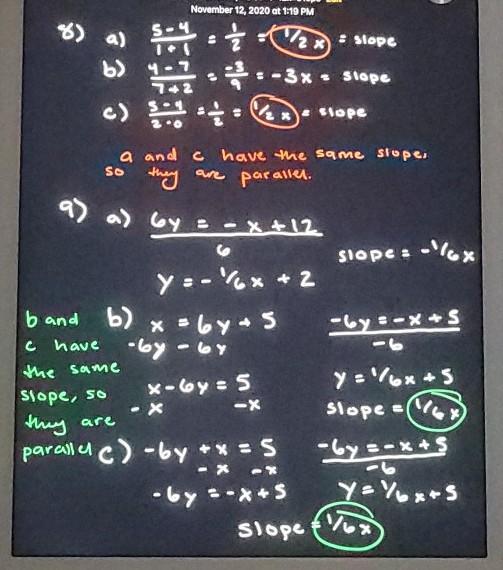 November 12, 2020 at 1:19 PM
8) a) 5-4/1+1 = 1/2 = 1/2 x = slope
b) 4-7/7+2 = -3/9 = -3x = slope
c) 5-4/2-0 = 1/2 = 1/2 x = slope
a and c have the same slope,
so they are parallel.
9) a) 6y = -x + 12
6
slope = -1/6x
y = -1/6x + 2
b and c have the same slope, so they are parallel
b) x = 6y + 5
-6y -6y
x - 6y = 5
-x -x
-6y = -x + 5
-6
y = 1/6x + 5
slope = 1/6x
c) -6y + x = 5
-x -x
-6y = -x + 5
-6y = -x + 5
-6
y = 1/6x + 5
slope = 1/6x